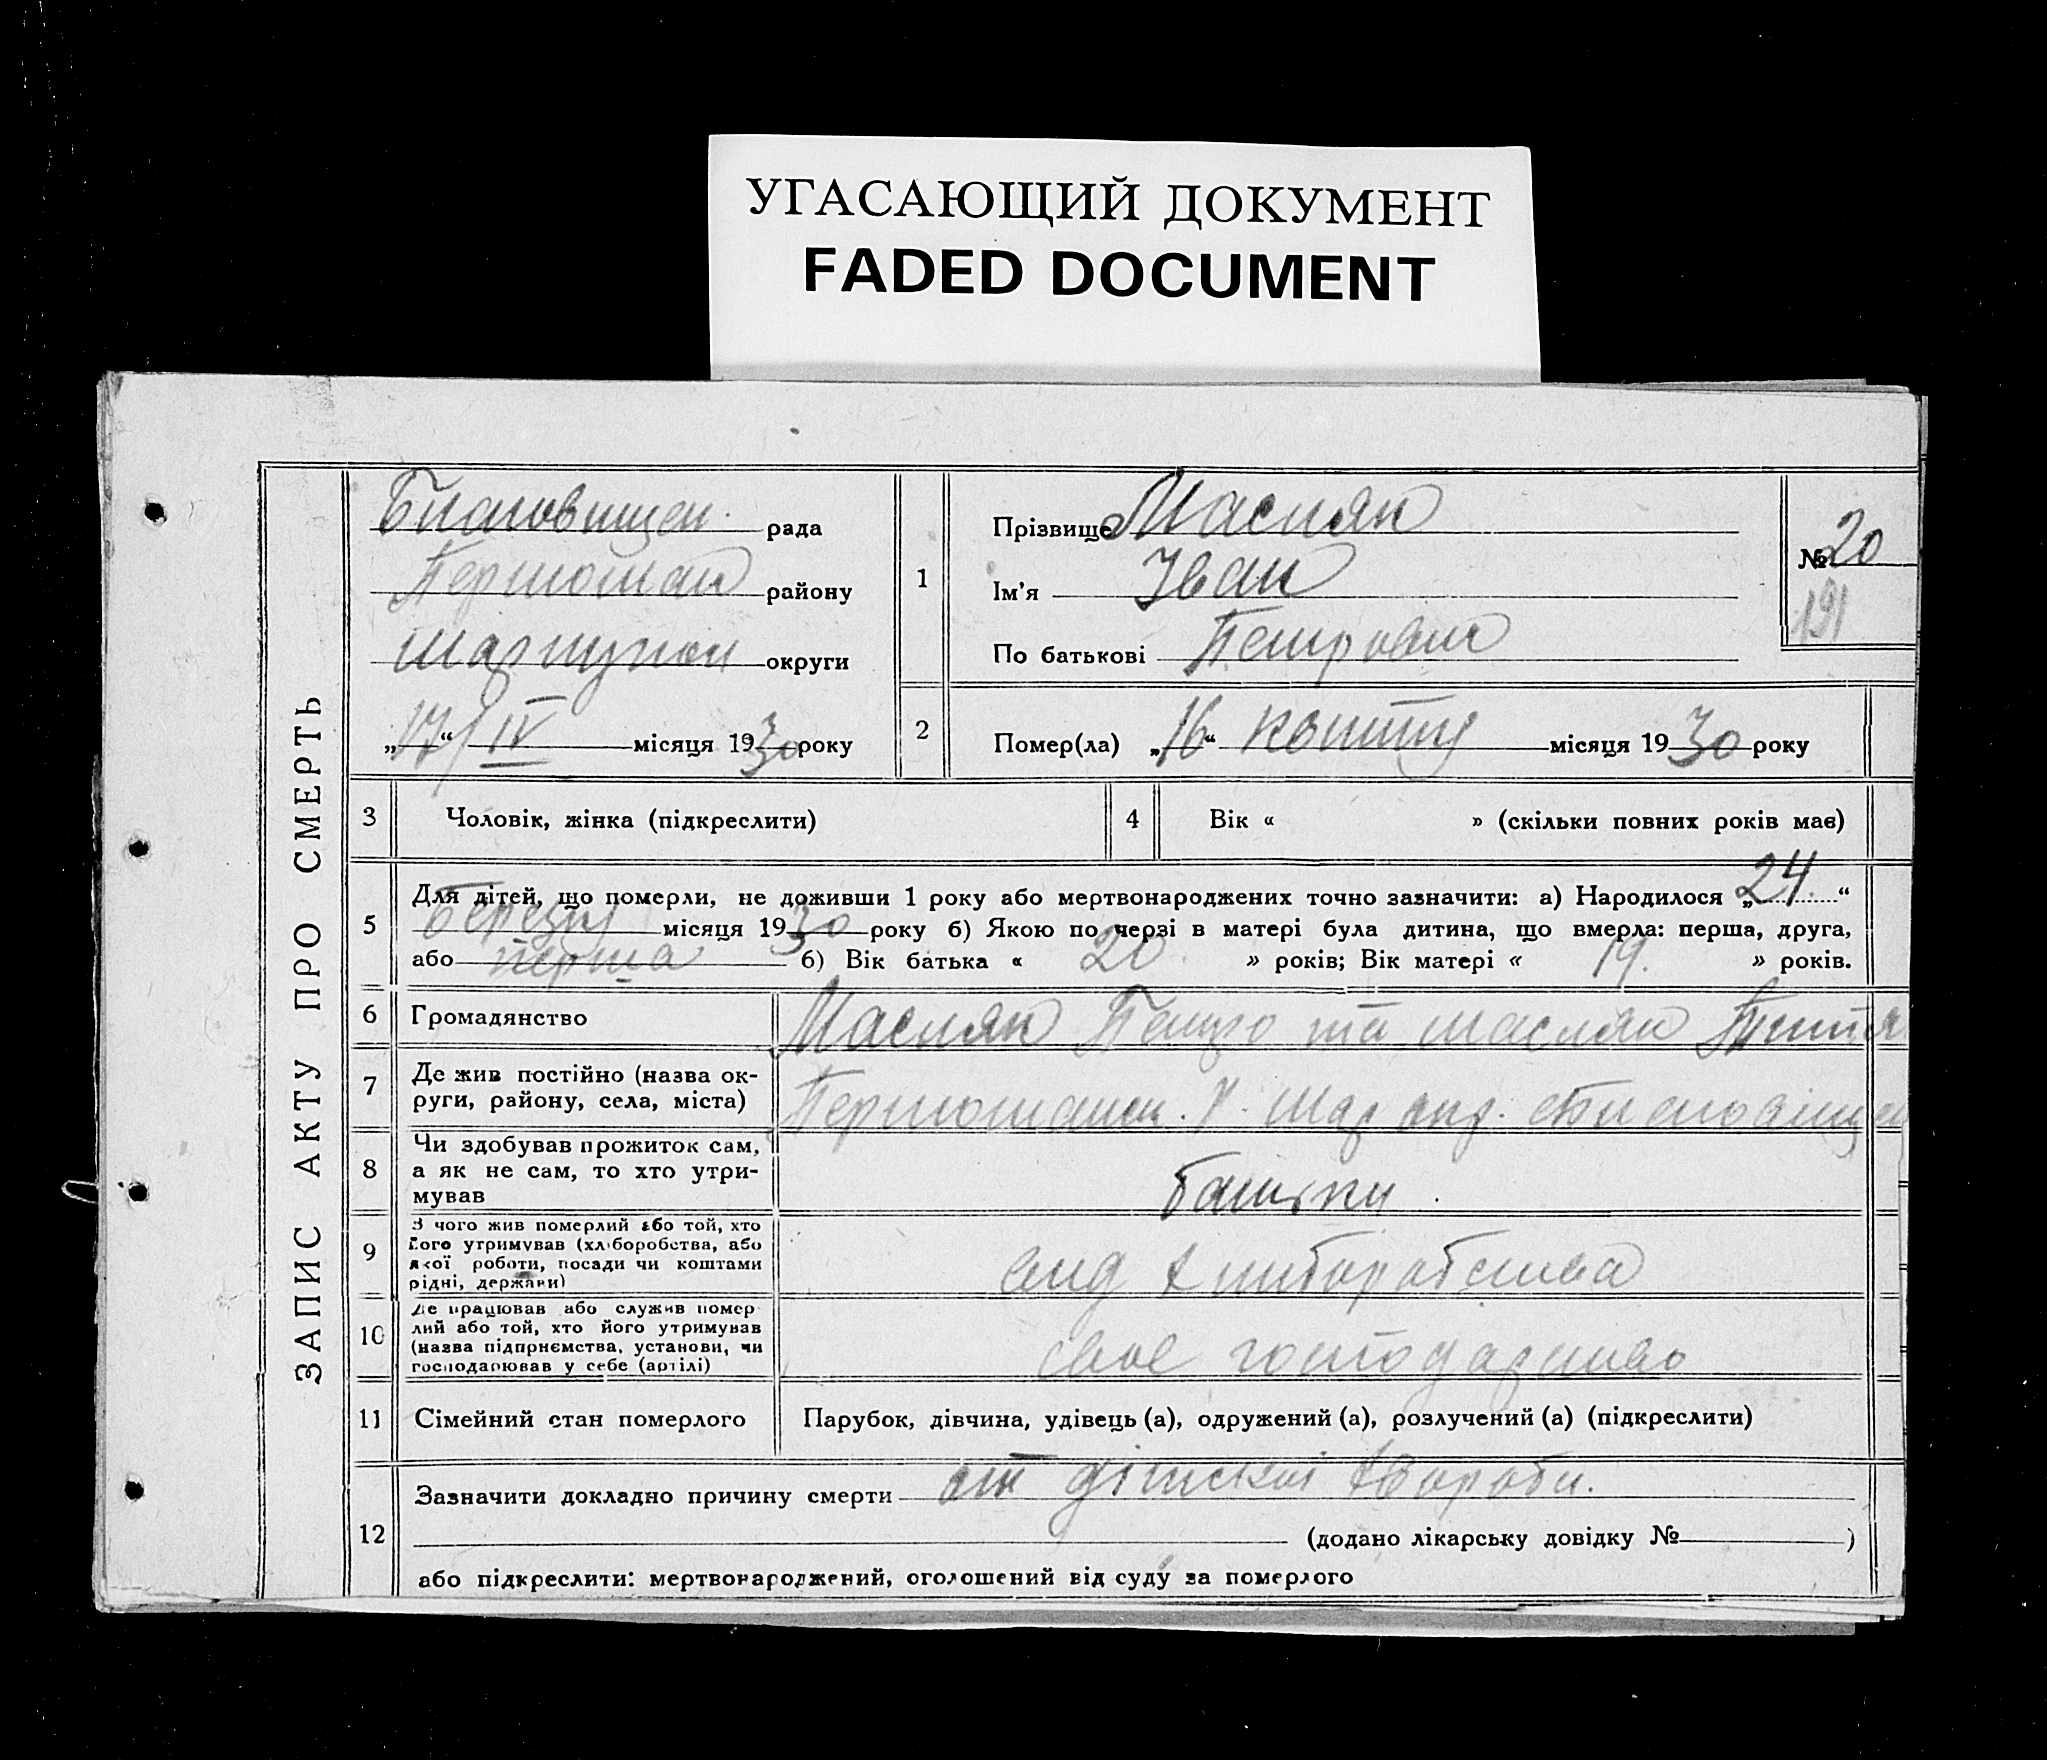 УГАСАЮЩИЙ ДОКУМЕНТ
FADED DOCUMENT
ЗАПИС АКТУ ПРО СМЕРТЬ
Благовищен. рада
району
округи
„17“ IV місяця 1930 року
1
Прізвище Масляк
Ім'я Іван
По батькові Петрович
№ 20
191
2
Помер(ла) „16“ квітня місяця 1930 року
3 Чоловік, жінка (підкреслити)
4 Вік « » (скільки повних років має)
5 Для дітей, що померли, не доживши 1 року або мертвонароджених точно зазначити: а) Народилося „24“
Березня місяця 1930 року б) Якою по черзі в матері була дитина, що вмерла: перша, друга,
або перша б) Вік батька « 20 » років; Вік матері « 19. » років.
6 Громадянство Масляк Петро та Масляк
7 Де жив постійно (назва ок-
руги, району, села, міста)
8 Чи здобував прожиток сам,
а як не сам, то хто утри-
мував
батьки
9 З чого жив померлий або той, хто
його утримував (хліборобства, або
якої роботи, посади чи коштами
рідні, держави)
від хліборобства
10 Де працював або служив помер
лий або той, хто його утримував
(назва підприємства, установи, чи
господарював у себе (артілі)
своє господарство
11 Сімейний стан померлого Парубок, дівчина, удівець (а), одружений (а), розлучений (а) (підкреслити)
12 Зазначити докладно причину смерти от дітскої хвороби.
(додано лікарську довідку № )
або підкреслити: мертвонароджений, оголошений від суду за померлого